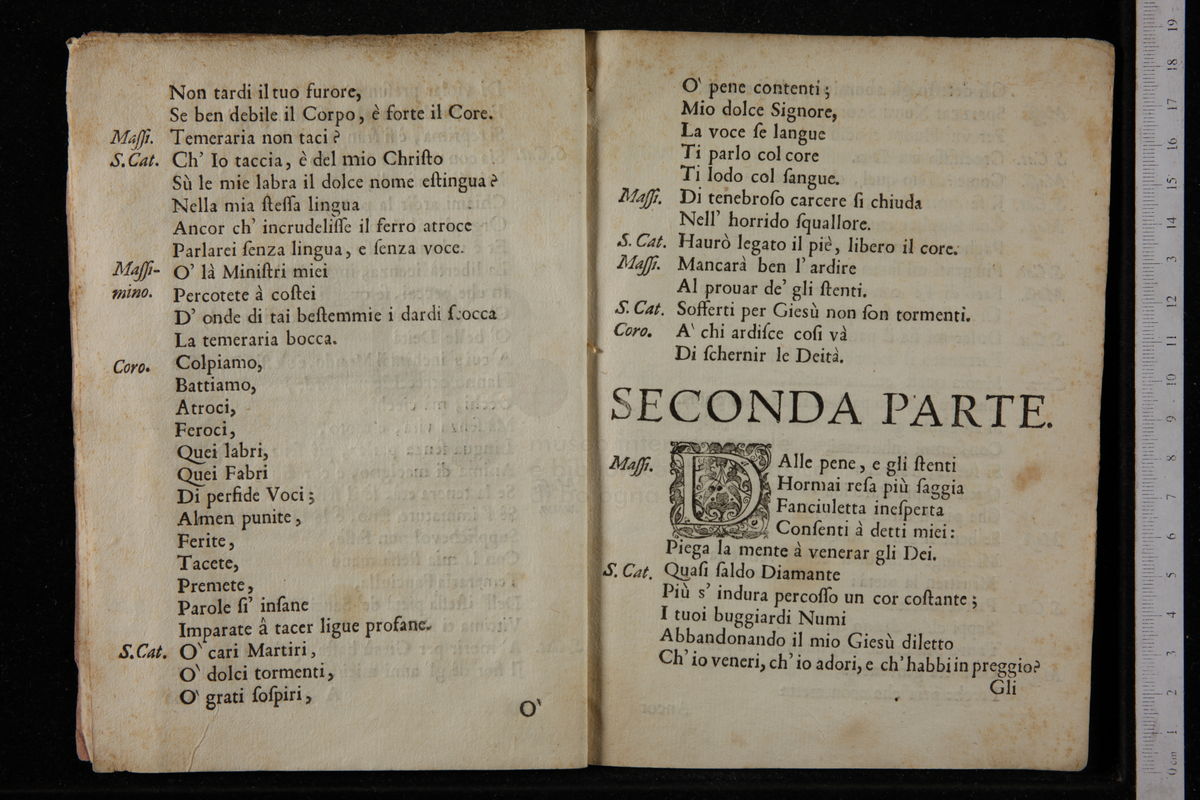 Non tardi il tuo furore,
Se ben debile il Corpo, è forte il Core.
Maſſi. Temeraria non taci?
S. Cat. Ch' Io taccia, è del mio Chriſto
Sù le mie labra il dolce nome eſtingua?
Nella mia ſteſſa lingua
Ancor ch' incrudeliſſe il ferro atroce
Parlarei ſenza lingua, e ſenza voce.
Maſſi- O' là Miniſtri miei
mino. Percotete à coſtei
D' onde di tai beſtemmie i dardi ſcocca
La temeraria bocca.
Coro. Colpiamo,
Battiamo,
Atroci,
Feroci,
Quei labri,
Quei Fabri
Di perfide Voci;
Almen punite,
Ferite,
Tacete,
Premete,
Parole ſi' inſane
Imparate â tacer ligue profane.
S. Cat. O' cari Martiri,
O' dolci tormenti,
O' grati ſoſpiri,
O'
O' pene contenti;
Mio dolce Signore,
La voce ſe langue
Ti parlo col core
Ti lodo col ſangue.
Maſſi. Di tenebroſo carcere ſi chiuda
Nell' horrido ſquallore.
S. Cat. Haurò legato il piè, libero il core.
Maſſi. Mancarà ben l' ardire
Al prouar de' gli ſtenti.
S. Cat. Sofferti per Giesù non ſon tormenti.
Coro. A' chi ardiſce coſi và
Di ſchernir le Deità.
SECONDA PARTE.
Maſſi. DAlle pene, e gli ſtenti
Hormai reſa più ſaggia
Fanciuletta ineſperta
Conſenti à detti miei:
Piega la mente à venerar gli Dei.
S. Cat. Quaſi ſaldo Diamante
Più s' indura percoſſo un cor coſtante;
I tuoi buggiardi Numi
Abbandonando il mio Giesù diletto
Ch' io veneri, ch' io adori, e ch' habbi in preggio?
Gli